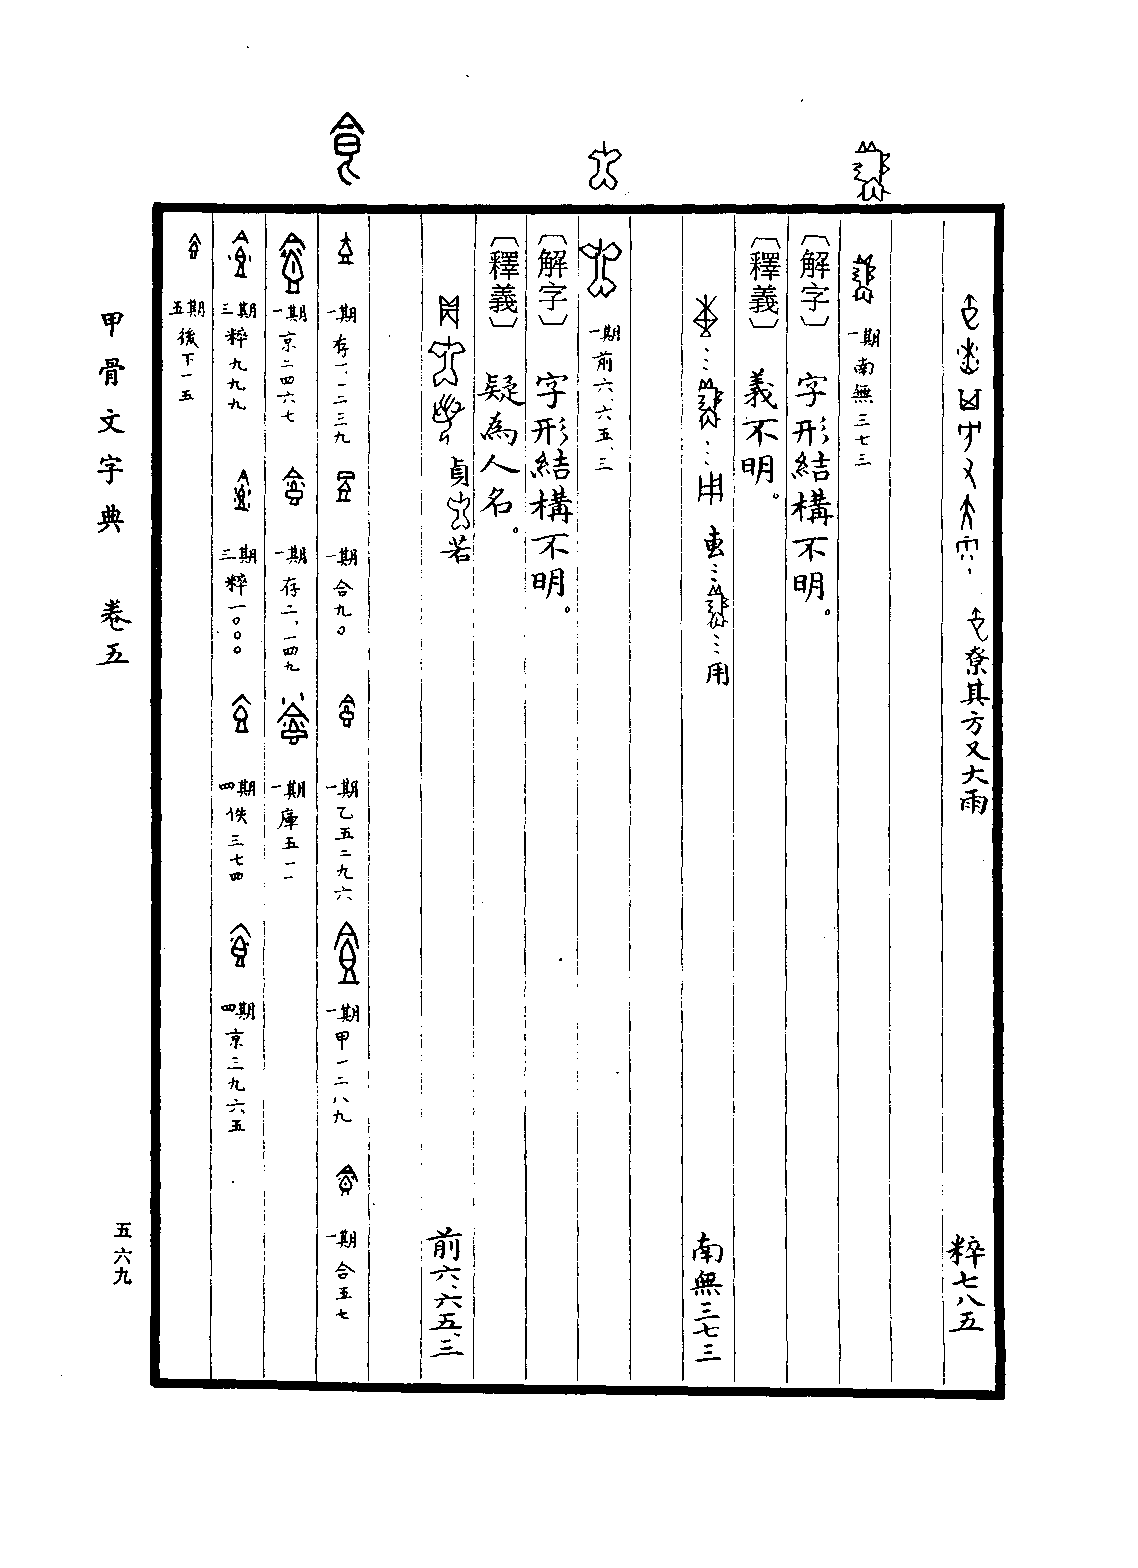 尞其方又大雨
粹七八五
一期南無三七三
〔解字〕 字形結構不明。
〔釋義〕 義不明。
叀…用
南無三七三
一期前六、六五、三
〔解字〕 字形結構不明。
〔釋義〕 疑為人名。
貞若
前六、六五、三
食
一期存一、二三三九
一期合九〇
一期乙五二九六
一期甲一二八九
一期合五七
一期京二四六七
一期存二、一四九
一期庫五一一
三期粹九九九
三期粹一〇〇〇
四期佚三七四
四期京三九六五
五期後下一五
甲骨文字典 卷五
五六九